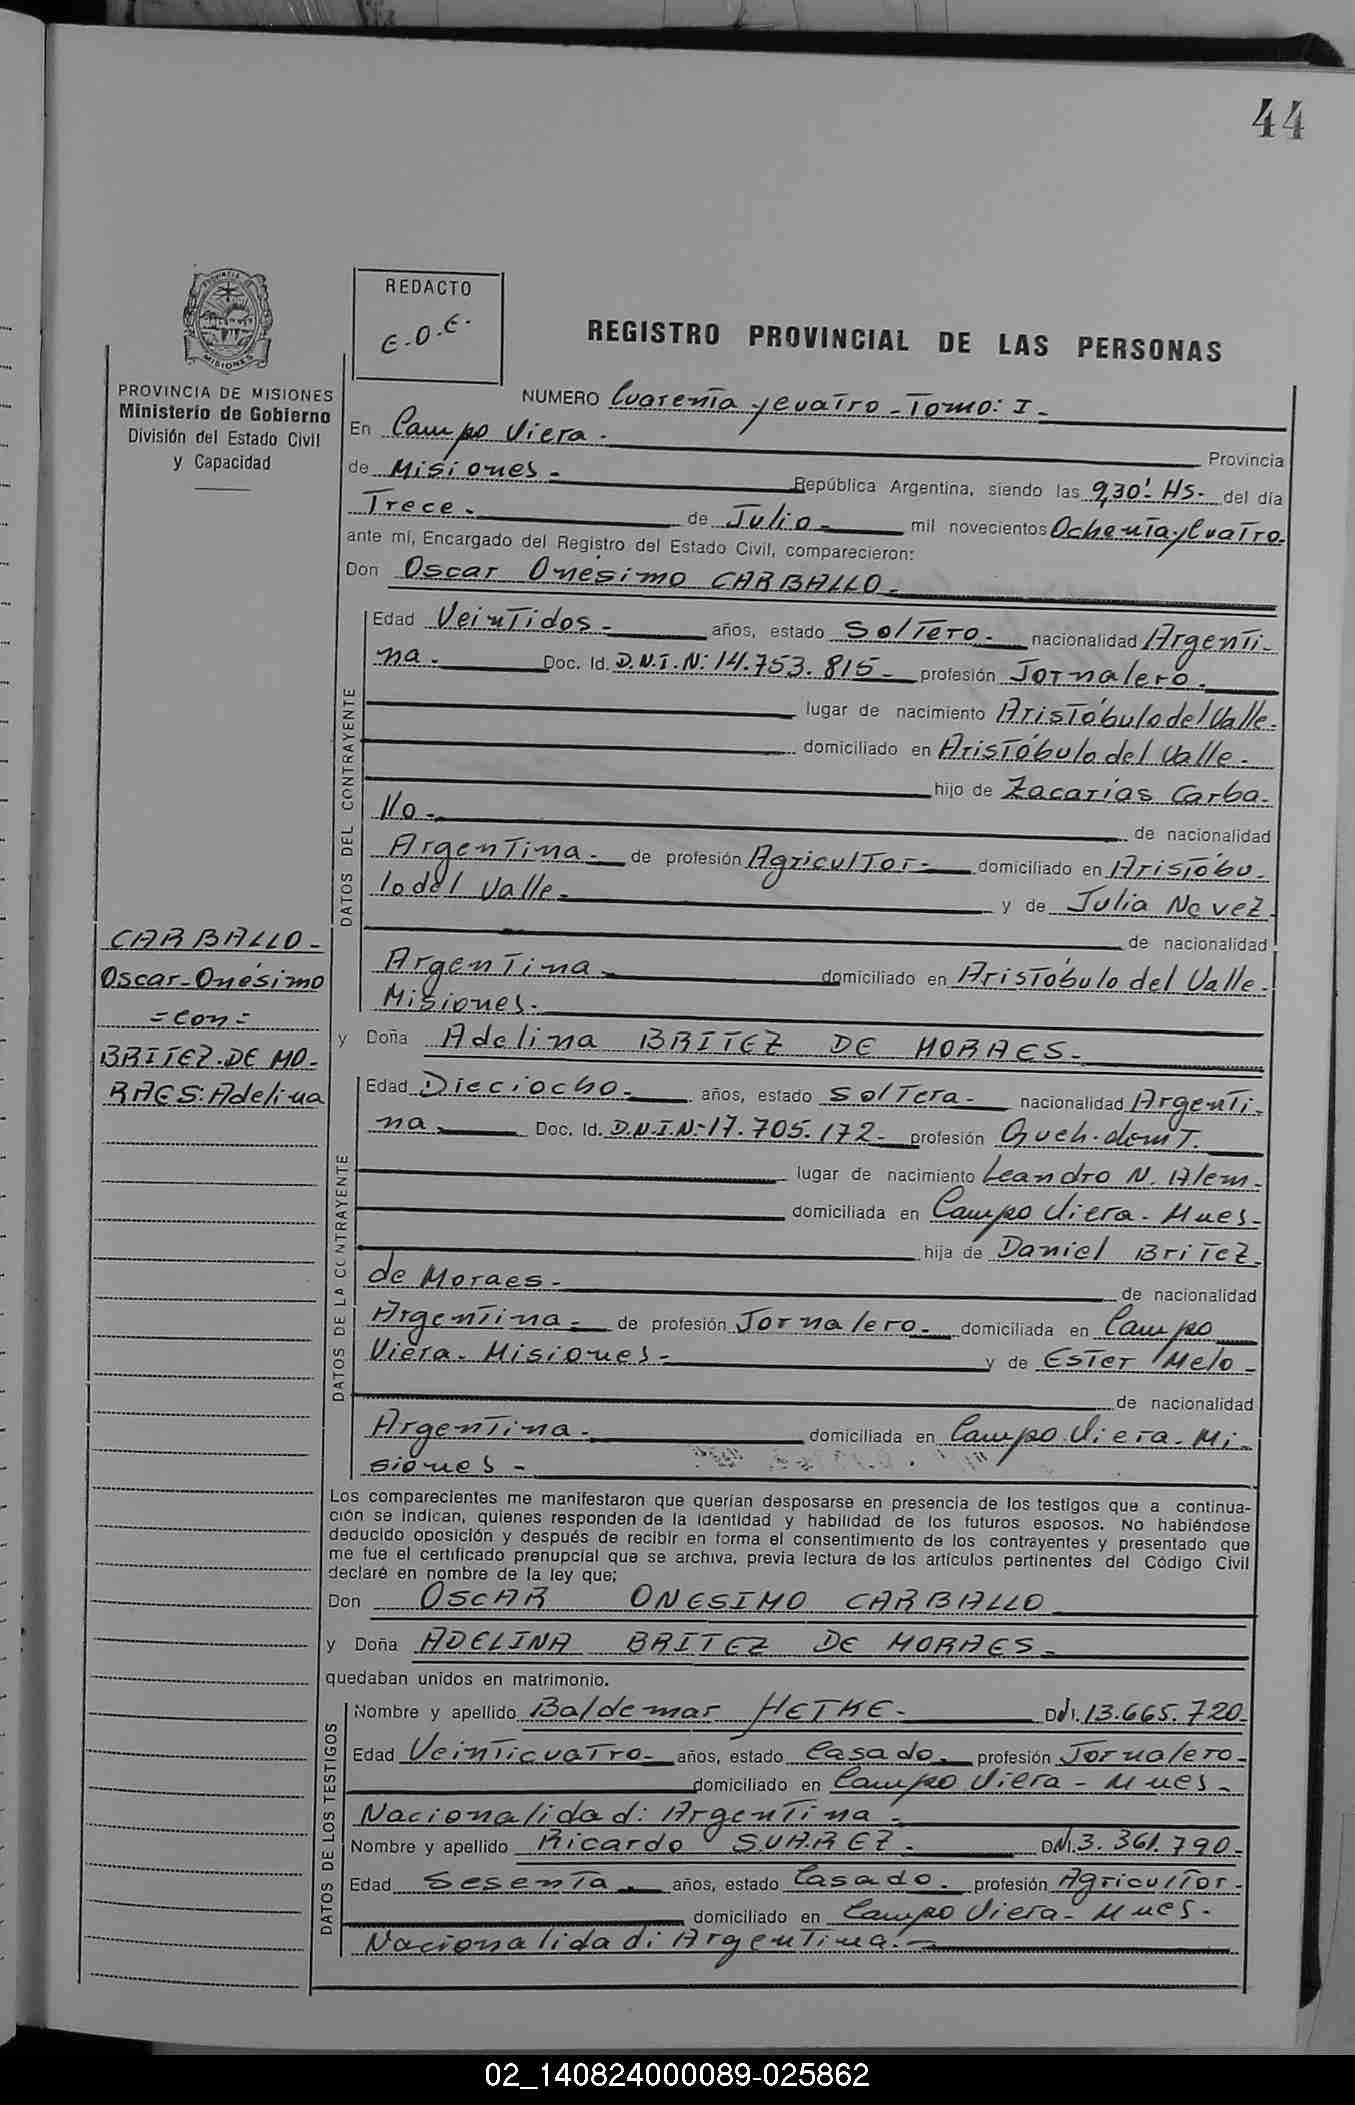 44
PROVINCIA DE MISIONES
Ministerio de Gobierno
División del Estado Civil
y Capacidad
CARBALLO-
Oscar-Onésimo
=con=
BRITEZ.DE MO-
RAES:Adelina
REDACTO
E.O.E.
REGISTRO PROVINCIAL DE LAS PERSONAS
NUMERO Cuarenta y cuatro - Tomo: I -
En Campo Viera - Provincia
de Misiones - República Argentina, siendo las 9,30' Hs. del día
Trece - de Julio - mil novecientos Ochenta y Cuatro.
ante mí, Encargado del Registro del Estado Civil, comparecieron:
Don Oscar Onésimo CARBALLO -
DATOS DEL CONTRAYENTE
Edad Veintidos - años, estado Soltero - nacionalidad Argenti-
na - Doc. Id. D.N.I.N: 14.753.815 - profesión Jornalero -
lugar de nacimiento Aristóbulo del Valle -
domiciliado en Aristóbulo del Valle -
hijo de Zacarías Carba-
llo - de nacionalidad
Argentina - de profesión Agricultor - domiciliado en Aristóbu-
lo del Valle - y de Julia
de nacionalidad
Argentina - domiciliado en Aristóbulo del Valle -
Misiones -
y Doña Adelina BRITEZ DE MORAES -
DATOS DE LA CONTRAYENTE
Edad Dieciocho - años, estado Soltera - nacionalidad Argenti-
na - Doc. Id. D.N.I.N:-17.705.172 - profesión Queh. domt.
lugar de nacimiento Leandro N. Alem -
domiciliada en Campo Viera - Mnes -
hija de Daniel Britez
de Moraes - de nacionalidad
Argentina - de profesión Jornalero - domiciliada en Campo
Viera - Misiones - y de Ester Melo -
de nacionalidad
Argentina - domiciliada en Campo Viera - Mi-
siones -
Los comparecientes me manifestaron que querían desposarse en presencia de los testigos que a continua-
ción se indican, quienes responden de la identidad y habilidad de los futuros esposos. No habiéndose
deducido oposición y después de recibir en forma el consentimiento de los contrayentes y presentado que
me fue el certificado prenupcial que se archiva, previa lectura de los artículos pertinentes del Código Civil
declaré en nombre de la ley que;
Don OSCAR ONESIMO CARBALLO
y Doña ADELINA BRITEZ DE MORAES -
quedaban unidos en matrimonio.
DATOS DE LOS TESTIGOS
Nombre y apellido Baldemar HETKE - DNI. 13.665.720
Edad Veinticuatro - años, estado Casado - profesión Jornalero -
domiciliado en Campo Viera - Mnes -
Nacionalidad: Argentina -
Nombre y apellido Ricardo SUAREZ - DNI. 3.361.790 -
Edad Sesenta - años, estado Casado - profesión Agricultor -
domiciliado en Campo Viera - Mnes -
Nacionalidad: Argentina. -
02_140824000089-025862